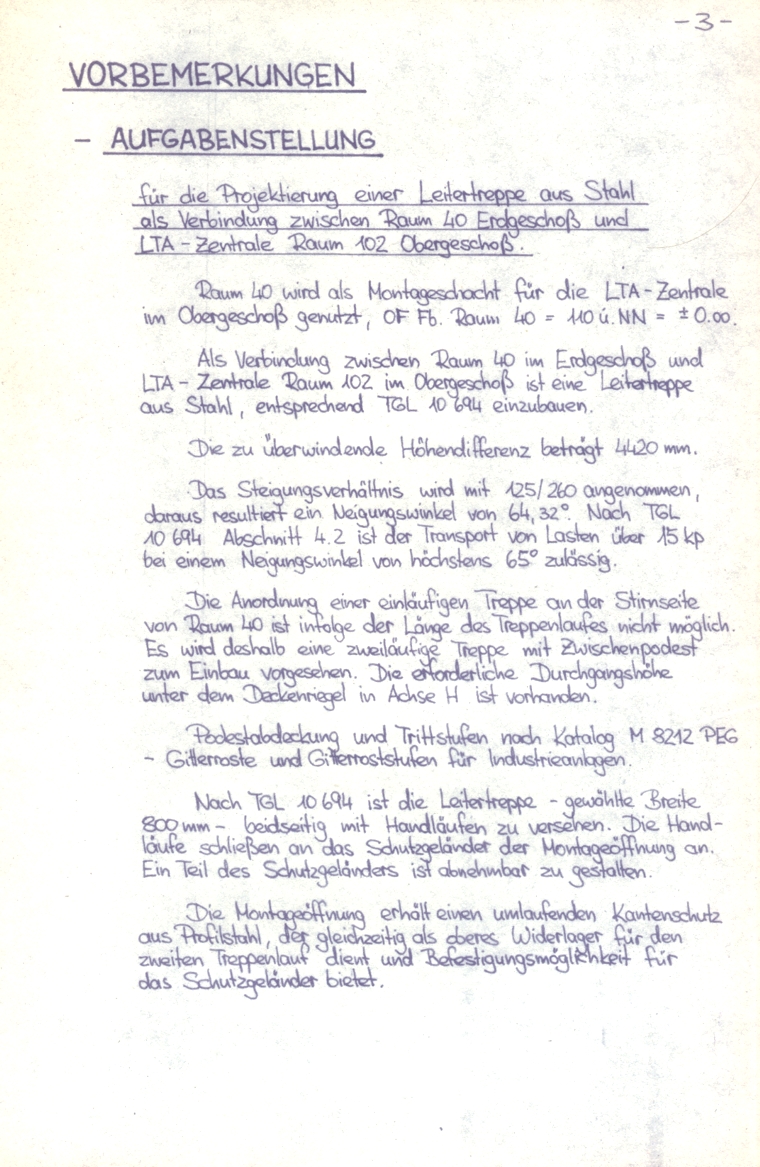 -3-
VORBEMERKUNGEN
- AUFGABENSTELLUNG
für die Projektierung einer Leitertreppe aus Stahl
als Verbindung zwischen Raum 40 Erdgeschoß und
LTA-Zentrale Raum 102 Obergeschoß.
Raum 40 wird als Montageschacht für die LTA-Zentrale
im Obergeschoß genutzt, OF Fb. Raum 40 = 110 ü. NN = ± 0.00.
Als Verbindung zwischen Raum 40 im Erdgeschoß und
LTA-Zentrale Raum 102 im Obergeschoß ist eine Leitertreppe
aus Stahl, entsprechend TGL 10 694 einzubauen.
Die zu überwindende Höhendifferenz beträgt 4420 mm.
Das Steigungsverhältnis wird mit 125/260 angenommen,
daraus resultiert ein Neigungswinkel von 64,32°. Nach TGL
10 694 Abschnitt 4.2 ist der Transport von Lasten über 15 kp
bei einem Neigungswinkel von höchstens 65° zulässig.
Die Anordnung einer einläufigen Treppe an der Stirnseite
von Raum 40 ist infolge der Länge des Treppenlaufes nicht möglich.
Es wird deshalb eine zweiläufige Treppe mit Zwischenpodest
zum Einbau vorgesehen. Die erforderliche Durchgangshöhe
unter dem Deckenriegel in Achse H ist vorhanden.
Podestabdeckung und Trittstufen nach Katalog M 8212 PEG
- Gitterroste und Gitterroststufen für Industrieanlagen.
Nach TGL 10 694 ist die Leitertreppe - gewählte Breite
800 mm - beidseitig mit Handläufen zu versehen. Die Hand-
läufe schließen an das Schutzgeländer der Montageöffnung an.
Ein Teil des Schutzgeländers ist abnehmbar zu gestalten.
Die Montageöffnung erhält einen umlaufenden Kantenschutz
aus Profilstahl, der gleichzeitig als oberes Widerlager für den
zweiten Treppenlauf dient und Befestigungsmöglichkeit für
das Schutzgeländer bietet.